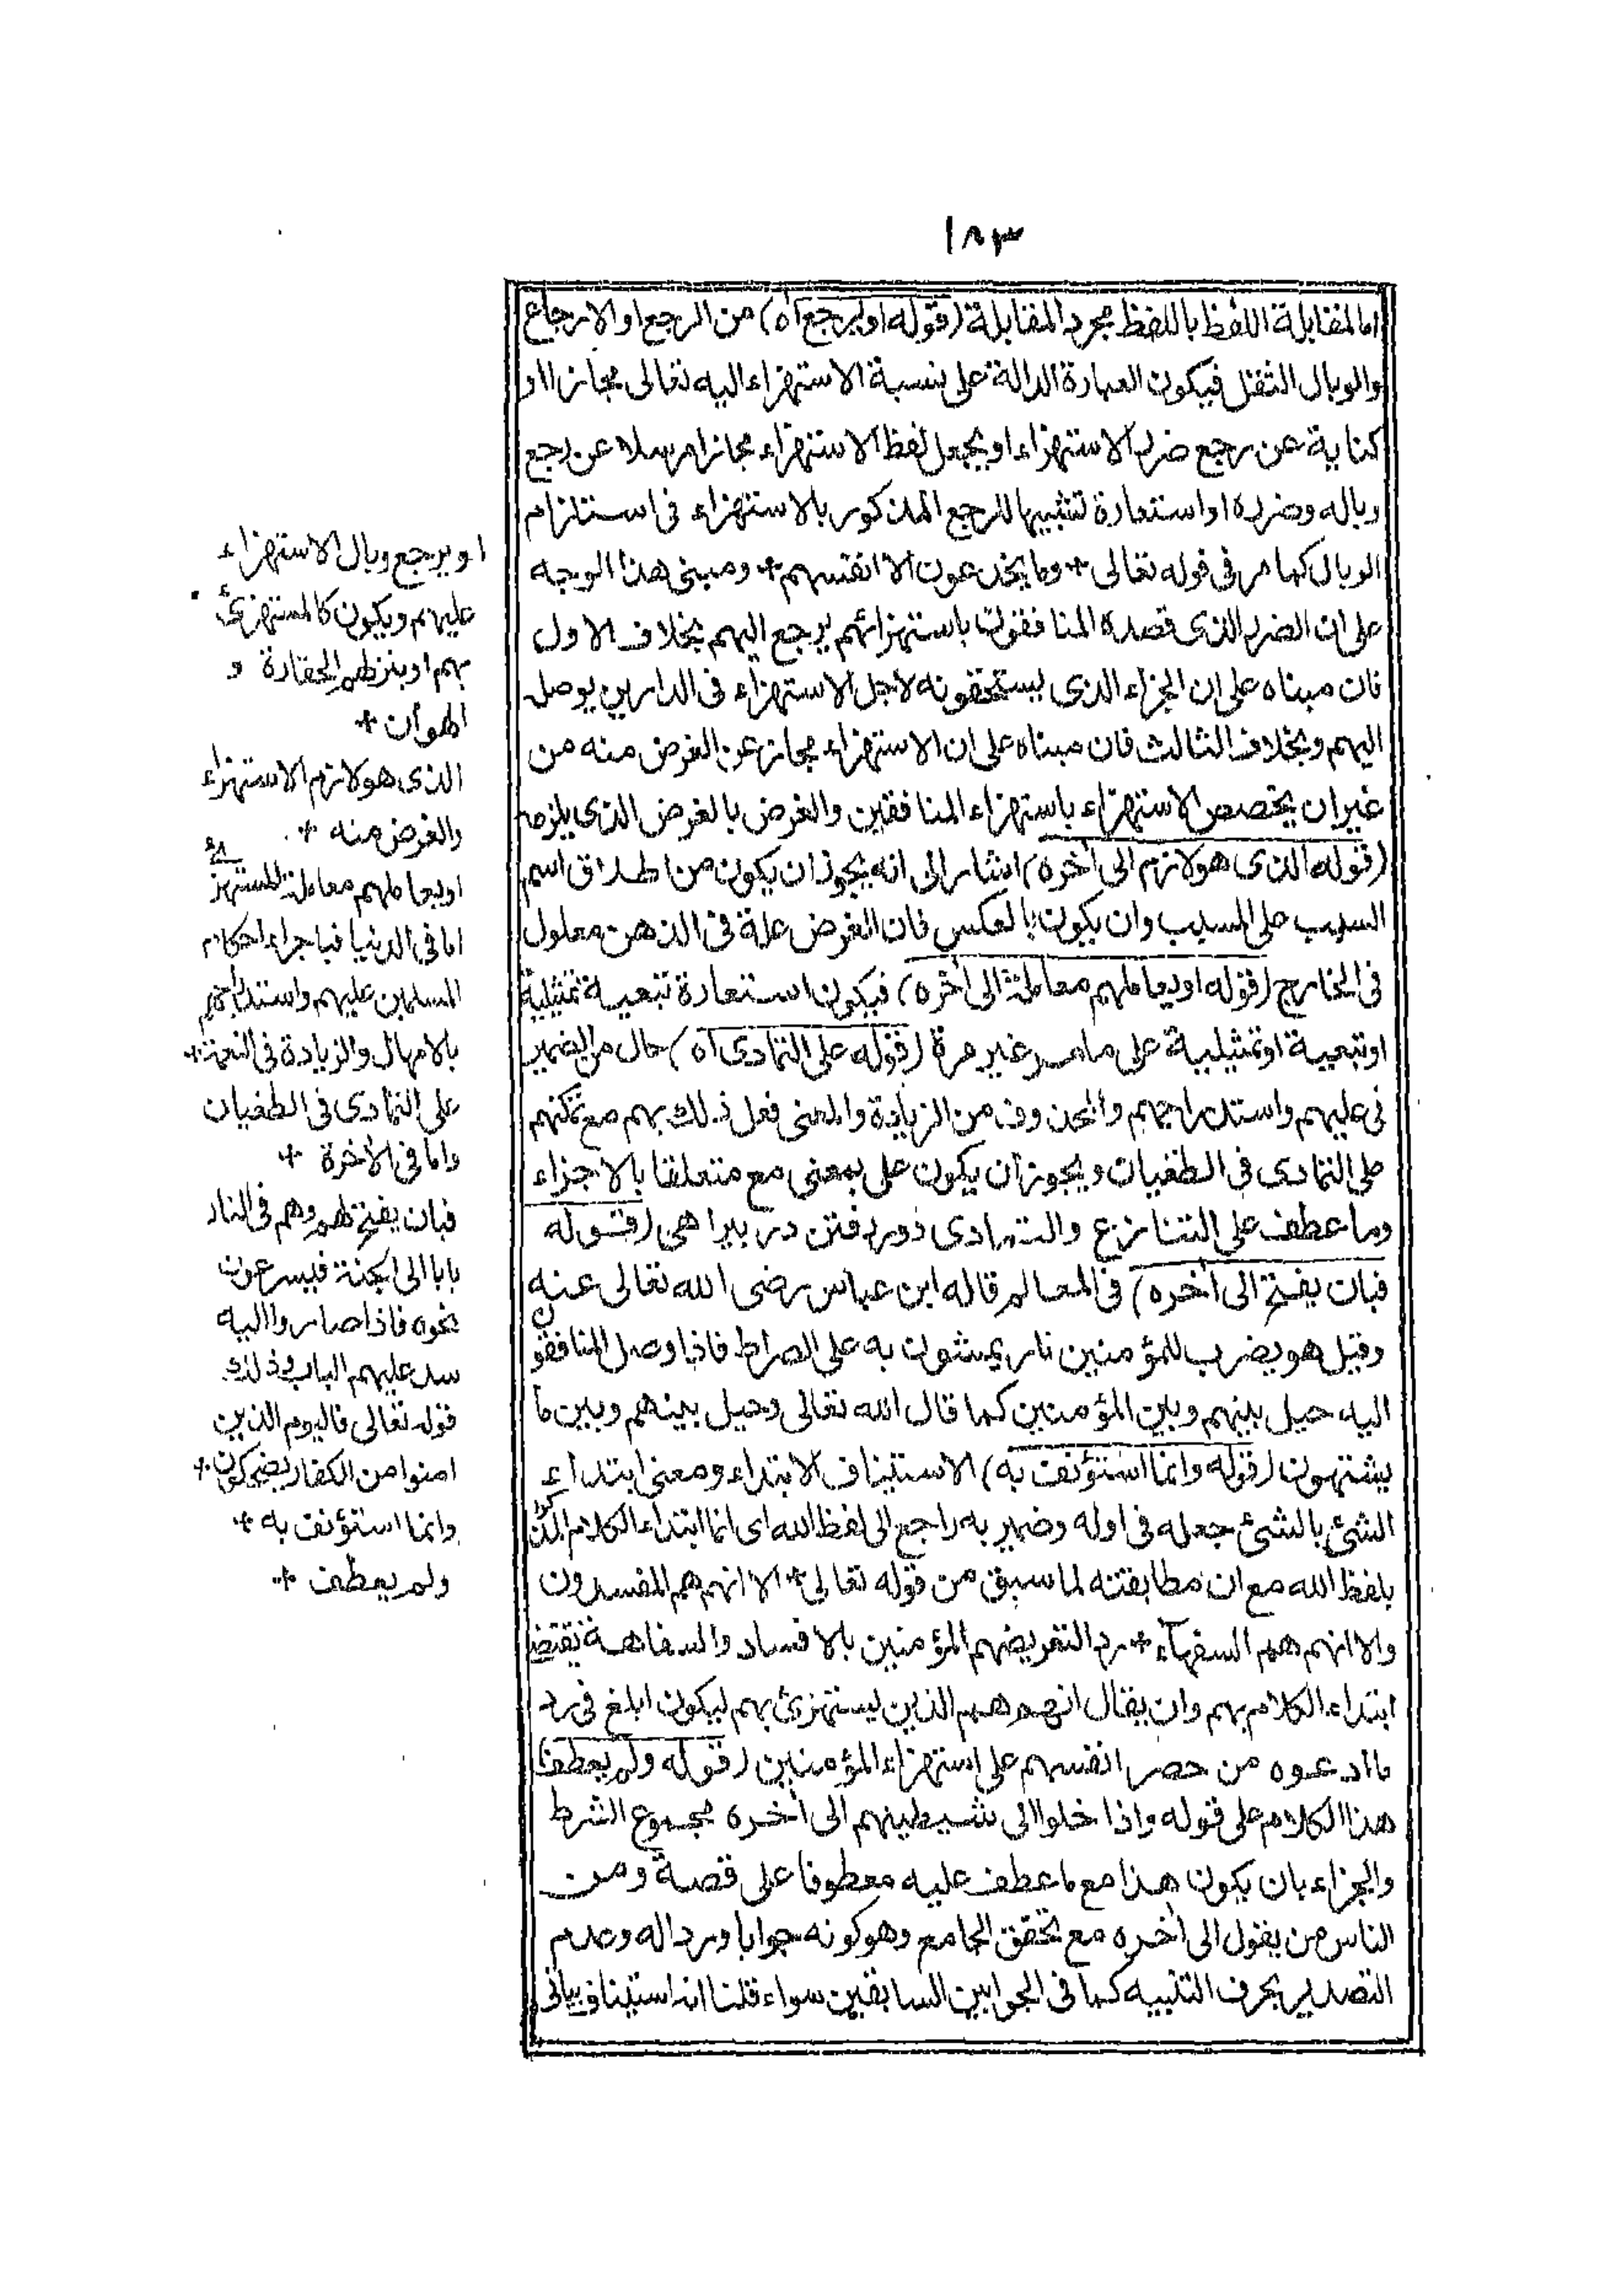 ١٨٣
اما لمقابلة اللفظ باللفظ مجرد المقابلة (قوله او يرجع اه) من الرجع او الارجاع
والوبال الثقل فيكون العبارة الدالة على نسبة الاستهزاء اليه تعالى مجازا او
كناية عن رجع ضرر الاستهزاء او يجعل لفظ الاستهزاء مجازا مرسلا عن رجع
وباله وضرره او استعارة تشبيها للرجع المذكور بالاستهزاء فى استلزام
الوبال كما مر فى قوله تعالى * وما يخدعون الا انفسهم * ومبنى هذا الوجه
على ان الضرر الذى قصده المنافقون باستهزائهم يرجع اليهم بخلاف الاول
فان مبناه على ان الجزاء الذى يستحقونه لاجل الاستهزاء فى الدارين يوصل
اليهم وبخلاف الثالث فان مبناه على ان الاستهزاء مجاز عن الغرض منه من
غير ان يخصص الاستهزاء باستهزاء المنافقين والغرض بالغرض الذى يلزمه
(قوله الذى هو لازم الى اخره) اشار الى انه يجوز ان يكون من اطلاق اسم
السبب على المسبب وان يكون بالعكس فان الغرض علة فى الذهن معلول
فى الخارج (قوله او يعاملهم معاملة الى اخره) فيكون استعارة تبعية تمثيلية
او تبعية او تمثيلية على ما مر غير مرة (قوله على التمادى اه) حال من الضمير
فى عليهم واستدراجهم والمحذوف من الزيادة والمعنى فعل ذلك بهم مع تمكنهم
على التمادى فى الطغيان ويجوز ان يكون على بمعنى مع متعلقا بالاجزاء
وما عطف على التنازع والتمادى دور رفتن در بيراهى (قوله
فبان يفتح الى اخره) فى المعالم قاله ابن عباس رضى الله تعالى عنه
وقيل هو يضرب للمؤمنين نار يمشون به على الصراط فاذا وصل المنافقون
اليه حيل بينهم وبين المؤمنين كما قال الله تعالى وحيل بينهم وبين ما
يشتهون (قوله وانما استؤنف به) الاستيناف الابتداء ومعنى ابتداء
الشئ بالشئ جعله فى اوله وضمير به راجع الى لفظ الله اى انما ابتداء الكلام المذكور
بلفظ الله مع ان مطابقته لما سبق من قوله تعالى * الا انهم هم المفسدون
والا انهم هم السفهاء * رد التعريضهم المؤمنين بالافساد والسفاهة تقتضى
ابتداء الكلام بهم وان يقال انهم هم الذين يستهزئ بهم ليكون ابلغ فى رد
ما ادعوه من حصر انفسهم على استهزاء المؤمنين (قوله ولم يعطف)
هذا الكلام على قوله واذا خلوا الى شيطينهم الى اخره مجموع الشرط
والجزاء بان يكون هذا مع ما عطف عليه معطوفا على قصة ومن
الناس من يقول الى اخره مع تحقق الجامع وهو كونه جوابا وردا له وعدم
التصدير بحرف التنبيه كما فى الجوابين السابقين سواء قلنا انه استيناف بيانى
او يرجع وبال الاستهزاء
عليهم ويكون كالمستهزئ
بهم او ينزل بهم الحقارة و
الهوان *
الذى هو لازم الاستهزاء
والغرض منه *
او يعاملهم معاملة المستهزئ
اما فى الدنيا فباجراء احكام
المسلمين عليهم واستدراجهم
بالامهال والزيادة فى النعمة *
على التمادى فى الطغيان
واما فى الاخرة *
فبان يفتح لهم وهم فى النار
بابا الى الجنة فيسرعون
نحوه فاذا صاروا اليه
سد عليهم الباب وذلك
قوله تعالى فاليوم الذين
امنوا من الكفار يضحكون *
وانما استؤنف به *
ولم يعطف *